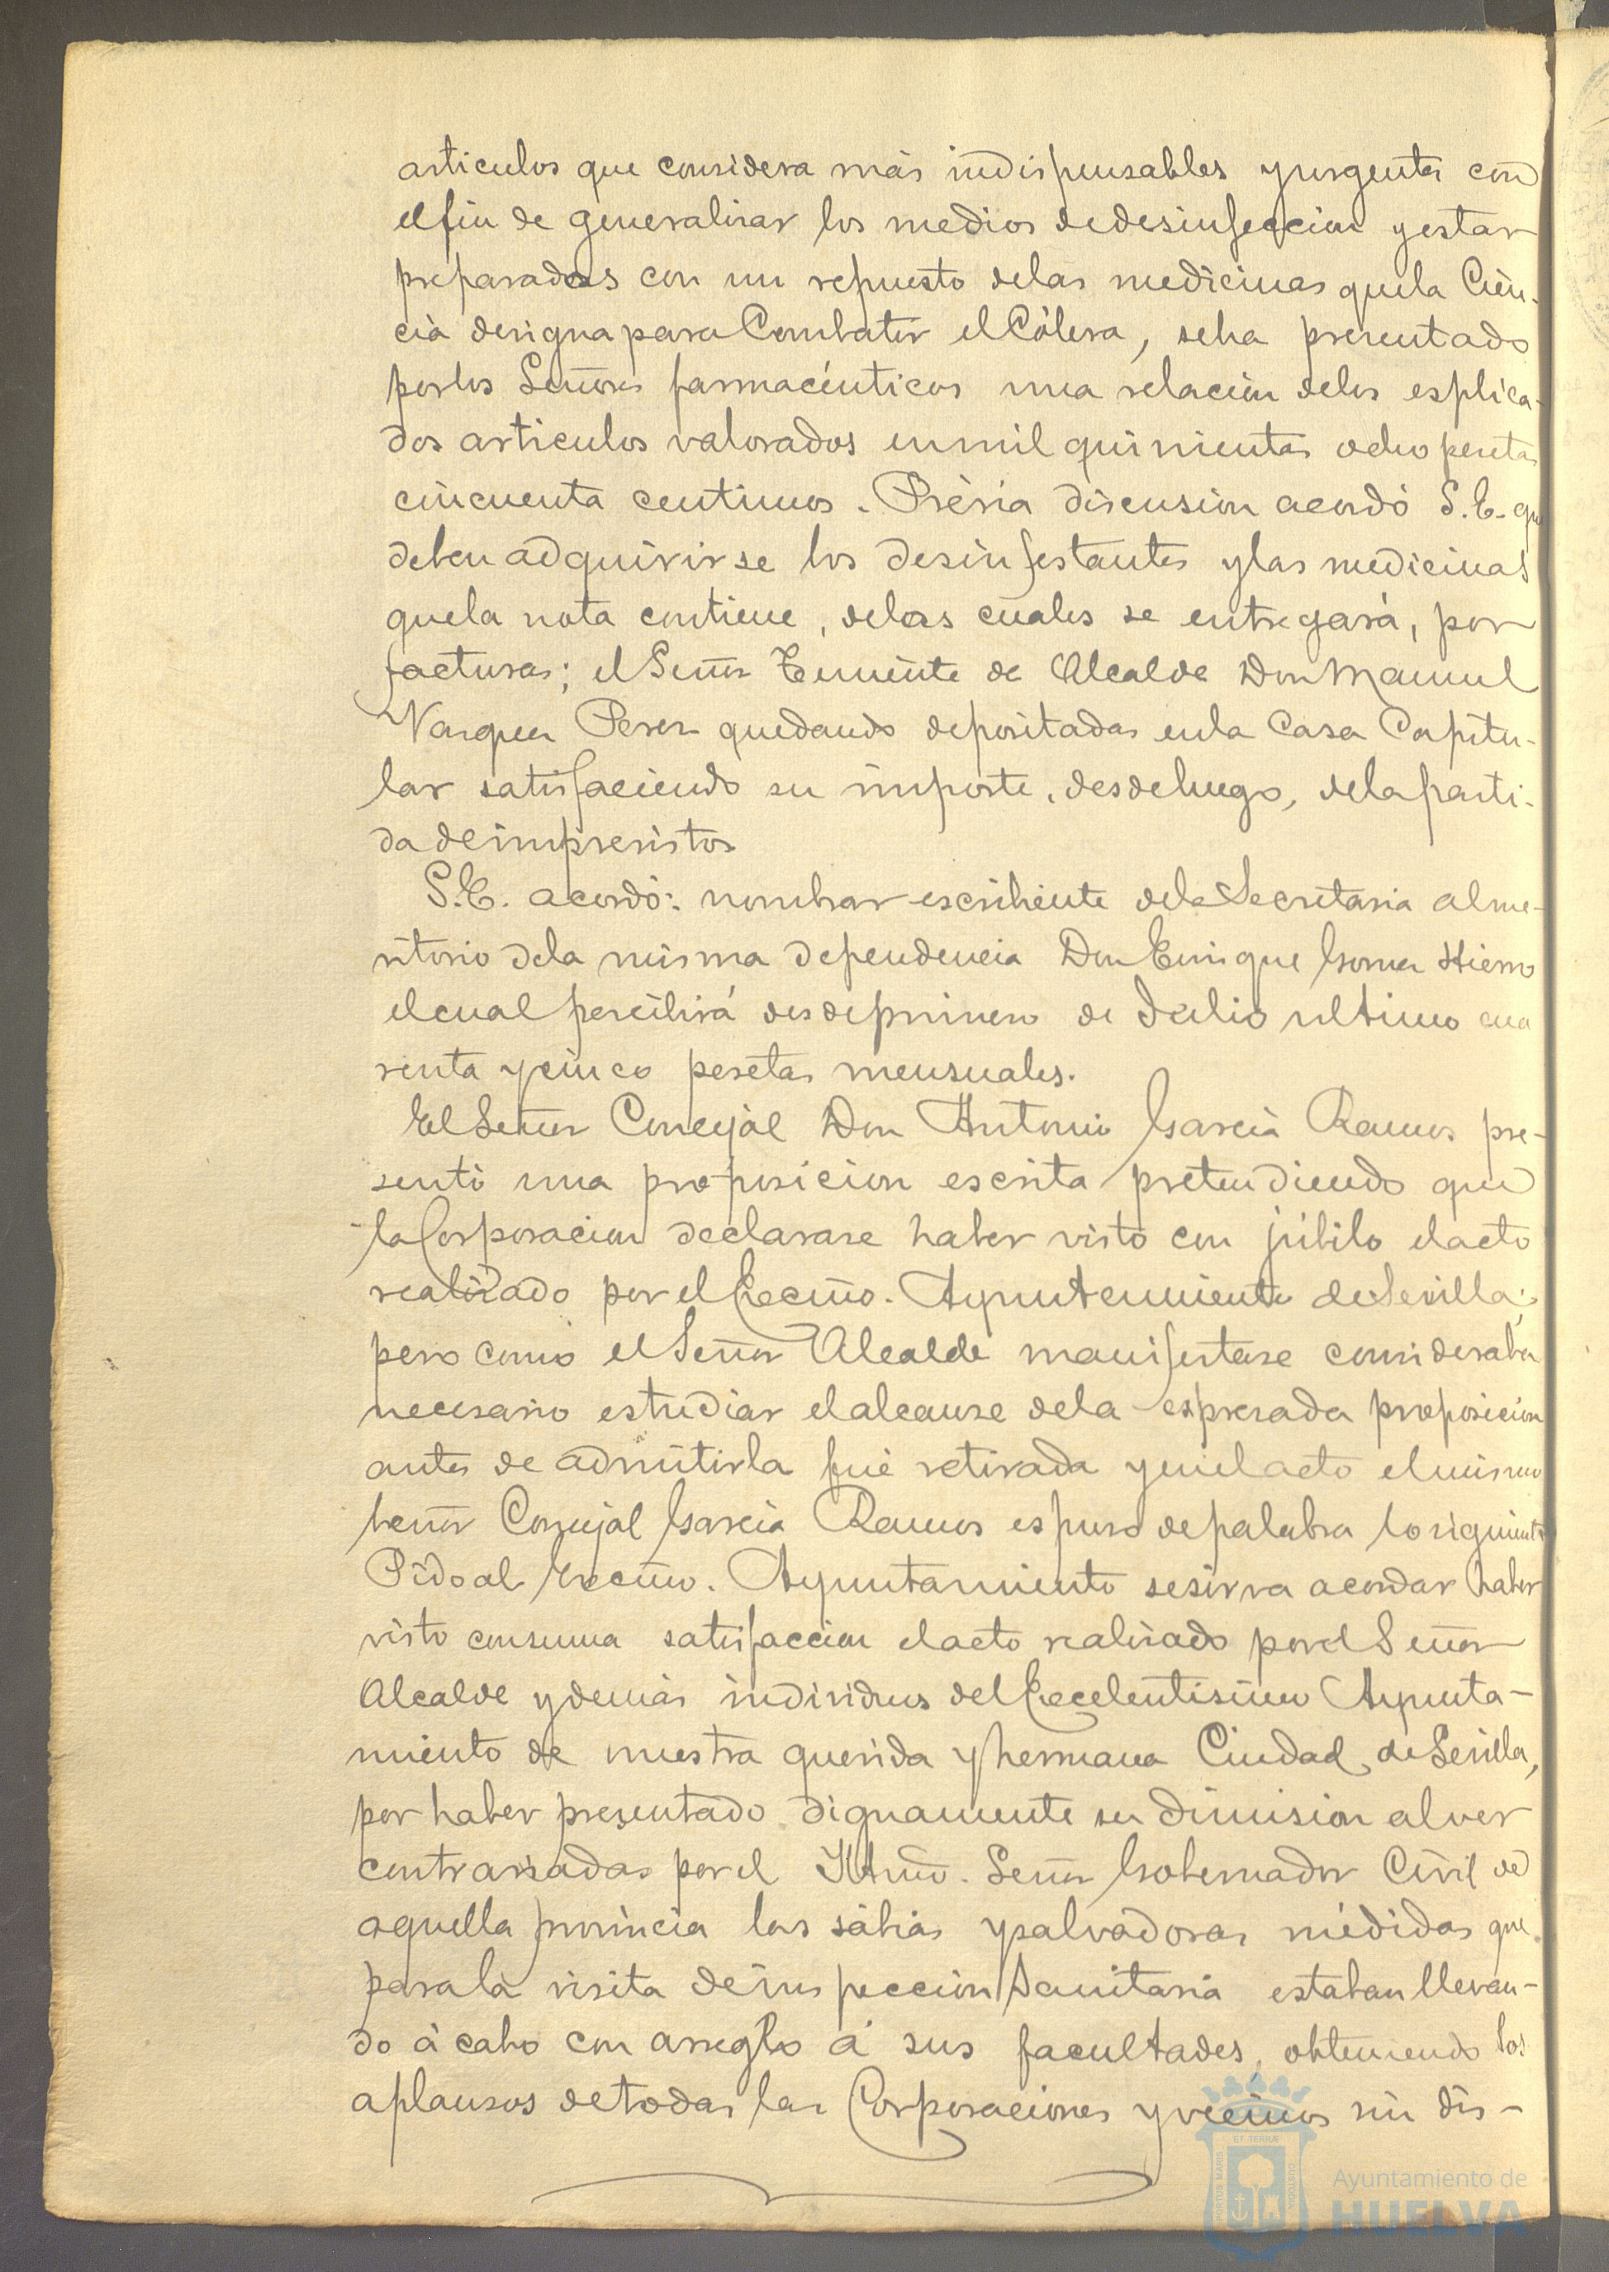 articulos que considera más indispensables y urgentes con
el fin de generalizar los medios de desinfeccion y estar
preparados con un repuesto de las medicinas que la Cien-
cia designa para Combatir el Cólera, se ha presentado
por los Señores farmacéuticos una relacion de los esplica-
dos articulos valorados en mil quinientas ocho pesetas
cincuenta centimos. Prévia discusion acordó S. E. que
deben adquirirse los desinfestantes y las medicinas
que la nota contiene, de las cuales se entregará, por
facturas; el Señor Teniente de Alcalde Don Manuel
Vazquez Perez quedando depositadas en la Casa Capitu-
lar satisfaciendo su importe, desde luego, de la parti-
da de imprevistos
S. E. acordó: nombrar escribiente de la Secretaria al me-
ritorio de la misma dependencia Don Enrique Gomez Hierro
el cual percibirá desde primero de Julio ultimo cua
renta y cinco pesetas mensuales.
El Señor Concejal Don Antonio Garcia Ramos pre-
sentó una proposicion escrita pretendiendo que
la Corporacion declarase haber visto con júbilo el acto
realizado por el Excmo. Ayuntamiento de Sevilla;
pero como el Señor Alcalde manifestase consideraba
necesario estudiar el alcanse de la espresada proposicion
antes de admitirla fué retirada y en el acto el mismo
Señor Concejal Garcia Ramos espuso de palabra lo siguiente
Pido al Excmo. Ayuntamiento se sirva acordar haber
visto con suma satisfaccion el acto realizado por el Señor
Alcalde y demás individuos del Excelentisimo Ayunta-
miento de nuestra querida y hermana Ciudad de Sevilla,
por haber presentado dignamente su dimision al ver
contrariadas por el Iltmo. Señor Gobernador Civil de
aquella provincia las sábias y salvadoras médidas que
para la visita de inspeccion Sanitaria estaban llevan-
do á cabo con arreglo á sus facultades, obteniendo los
aplausos de todas las Corporaciones y vecinos sin dis-
PORTUS MARIS
ET TERRÆ
CUSTODIA
Ayuntamiento de
HUELVA